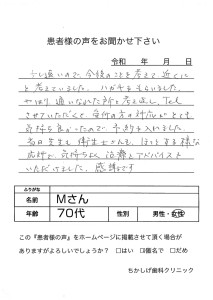 患者様の声をお聞かせ下さい
令和　年　月　日
少し遠いので、今後のことを考えて近くに
と考えていました。ハガキをもらいました。
やはり通いなれた所と考え直し、Tel
させていただくと、受付の方の対応がとても
気持ち良かったので予約を入れました。
当日先生も衛生士さんも、ほっとする様な
応対で、気持ちよく治療とアドバイスを
いただいてました。感謝です
ふりがな
名前　Mさん
年齢　70代　性別　男性・女性
この『患者様の声』をホームページに掲載させて頂く場合が
ありますがよろしいでしょうか？　□はい　□匿名で　□だめ
ちかしげ歯科クリニック